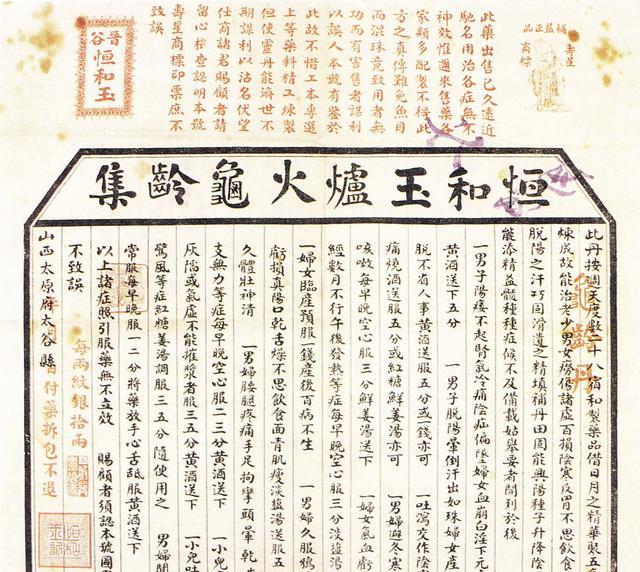 補益正品
壽星
商標
此藥出售已久遠近
馳名用治各症無不
神效惟邇來售藥各
家類多配製不得此
方之真傳難免魚目
而混珠竟致用者無
功而有害售者謀利
以誤人本號有鑒於
此故不惜工本專選
上等藥料精工煉製
但使靈丹能濟世不
期謀利以沽名伏望
仕商諸君賜顧者請
留心檢查認明本號
壽星商標印票庶不
致誤
晋谷
恒和玉
恒和玉爐火龜齡集
龜齡丹
此丹按週天度數二十八宿和製藥品借日月之精華製五
煉成故能治老少男女癆傷諸虛百損陰寒反胃不思飲食
脫陽之汗巧固滑遺之精填補丹田固能興陽種子升降陰
能添精益髓種種症候不及備載姑舉要者開列於後
一男子陽痿不起腎氣冷痛陰症偏墜婦女血崩白淫下元
黃酒送下五分　一男子脫陽暈倒汗出如珠婦女產
脫不省人事黃酒送服五分或一錢亦可　一吐瀉交作陰
痛燒酒送服五分或紅糖鮮姜湯亦可　一男婦避冬寒
咳嗽每早晚空心服三分鮮姜湯送下　一婦女氣血虧
經數月不行午後發熱等症每早晚空心服三分淡鹽湯
一婦女臨產預服一錢產後百病不生　一男婦久服鴉
虧損真陽口乾舌燥不思飲食面青肌瘦淡鹽湯送服五
久體壯神清　一男婦腰腿疼痛手足拘攣頭暈乾
支無力等症每早晚空心服二三分黃酒送下　一小兒
灰陷或氣虛不能催漿者服三五分黃酒送下　一小兒吐
驚風等症紅糖姜湯調服三五分隨便用之　男婦閒
常服每早晚服一二分將藥放手心舌舐服黃酒送下
以上諸症照引服藥無不立效　賜顧者須認本號圖
不致誤
每兩紋銀拾兩
山西太原府太谷縣
付藥拆包不退